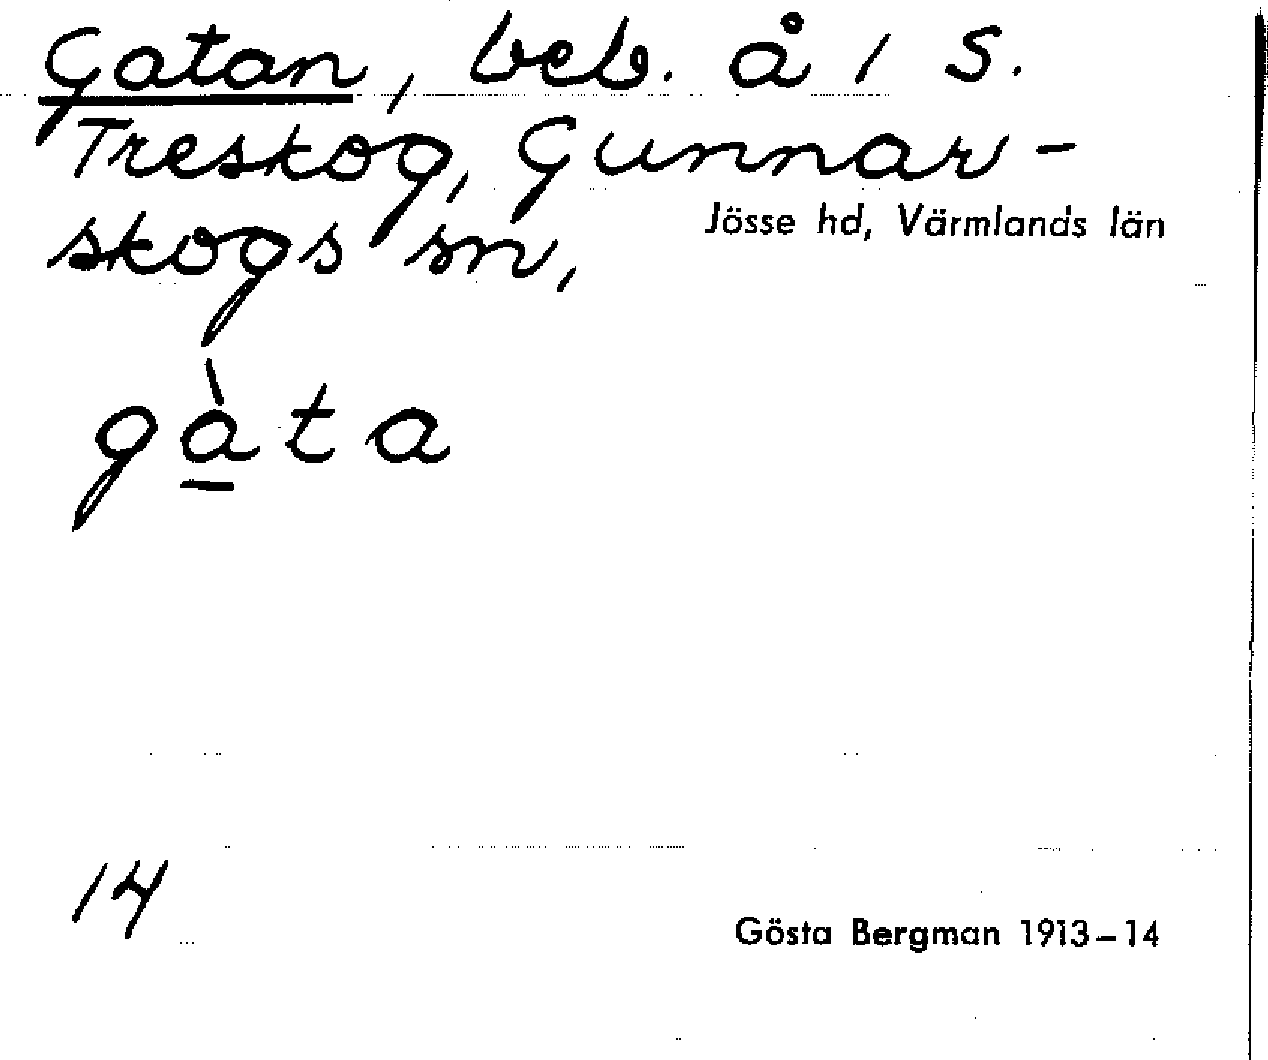 Gatan, beb. å 1 S.
Treskog, Gunnar-
skogs sn,
Jösse hd, Värmlands län
gàta
14
Gösta Bergman 1913–14